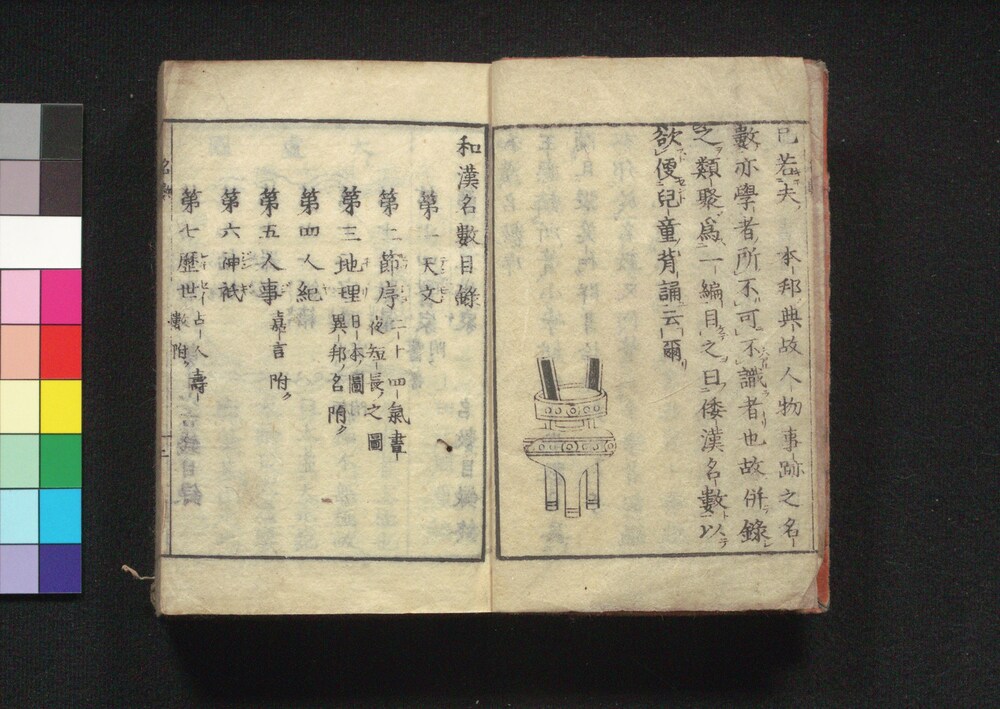 已若夫 本邦典故人物事跡之名
數亦學者所不可不識者也故併錄
之類聚爲一編目之曰倭漢名數以
欲便兒童背誦云爾
和漢名數目録
第一天文
第二節序 二十四氣晝夜短長之圖
第三地理 日本圖異邦名附
第四人紀
第五人事 嘉言附
第六神祇
第七歷世 占人壽數附